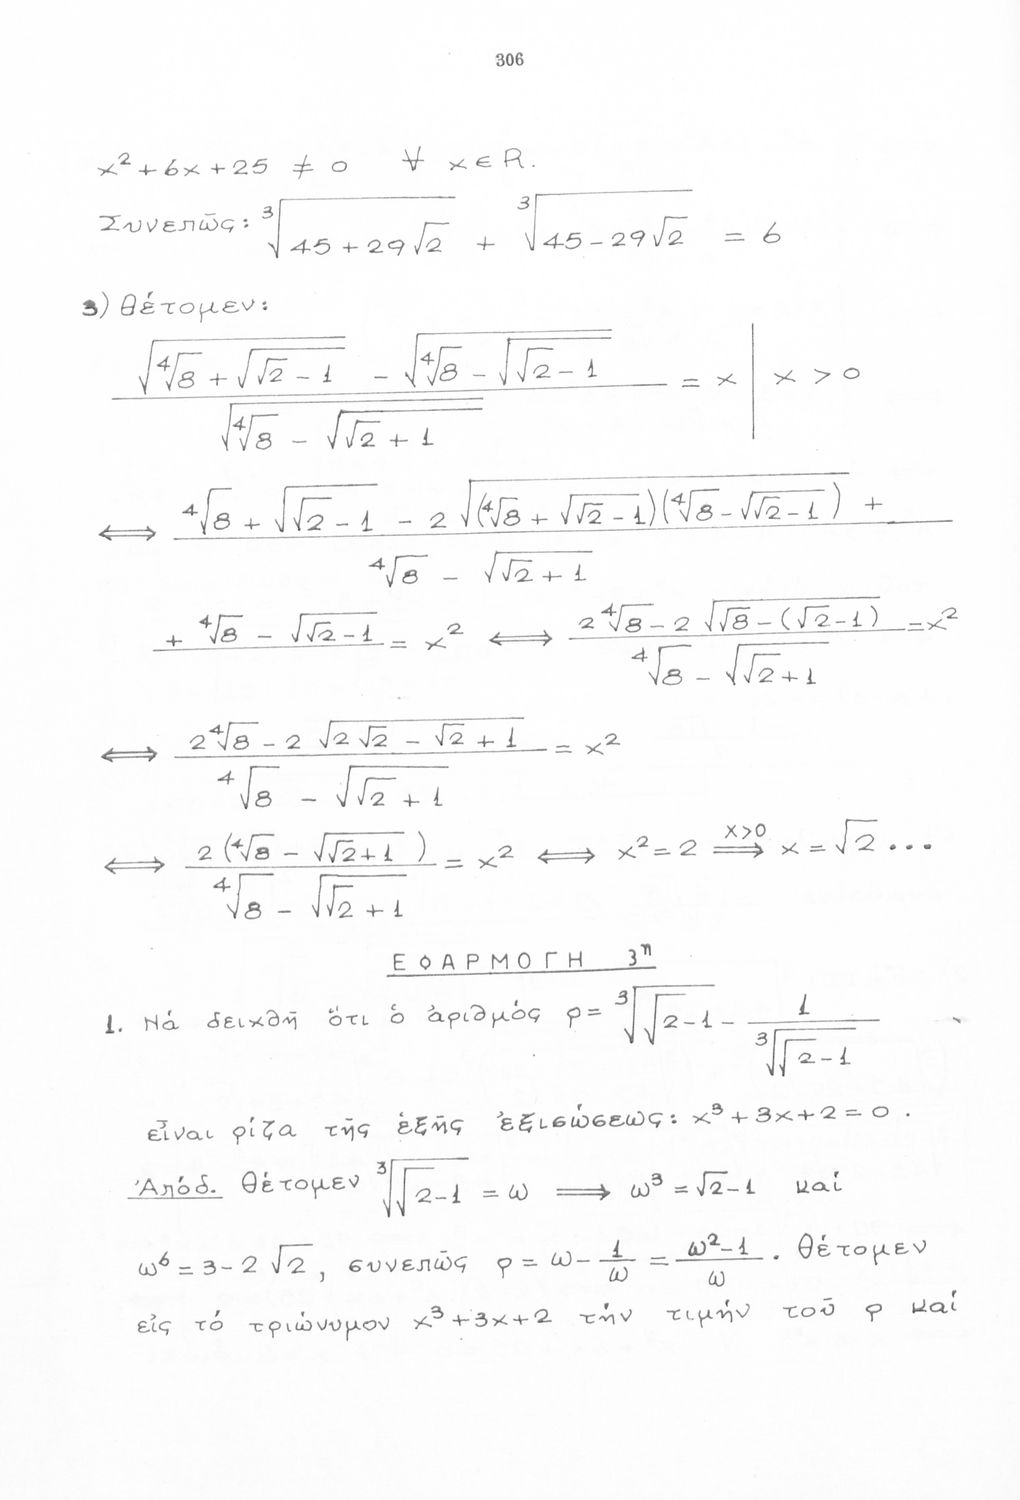 306
x² + 6x + 25 ≠ 0 ∀ x ∈ R.
Συνεπῶς: ∛(45 + 29√2) + ∛(45 - 29√2) = 6
3) Θέτομεν:
(√(∜8 + √(√2 - 1)) - √(∜8 - √(√2 - 1))) / √(∜8 - √(√2 + 1)) = x | x > 0
⟺ (∜8 + √(√2 - 1) - 2√((∜8 + √(√2 - 1))(∜8 - √(√2 - 1))) + / (∜8 - √(√2 + 1))
+ ∜8 - √(√2 - 1)) = x² ⟺ (2∜8 - 2√(√8 - (√2 - 1))) / (∜8 - √(√2 + 1)) = x²
⟺ (2∜8 - 2√(2√2 - √2 + 1)) / (∜8 - √(√2 + 1)) = x²
⟺ 2(∜8 - √(√2 + 1)) / (∜8 - √(√2 + 1)) = x² ⟺ x² = 2 ⟹ (x>0) x = √2 ...
ΕΦΑΡΜΟΓΗ 3η
1. Νά δειχθῆ ὅτι ὁ ἀριθμός ρ = ∛(√2 - 1) - 1/∛(√2 - 1)
εἶναι ρίζα τῆς ἑξῆς ἐξισώσεως: x³ + 3x + 2 = 0.
Ἀπόδ. Θέτομεν ∛(√2 - 1) = ω ⟹ ω³ = √2 - 1 καί
ω⁶ = 3 - 2√2, συνεπῶς ρ = ω - 1/ω = (ω² - 1)/ω. Θέτομεν
εἰς τό τριώνυμον x³ + 3x + 2 τήν τιμήν τοῦ ρ καί